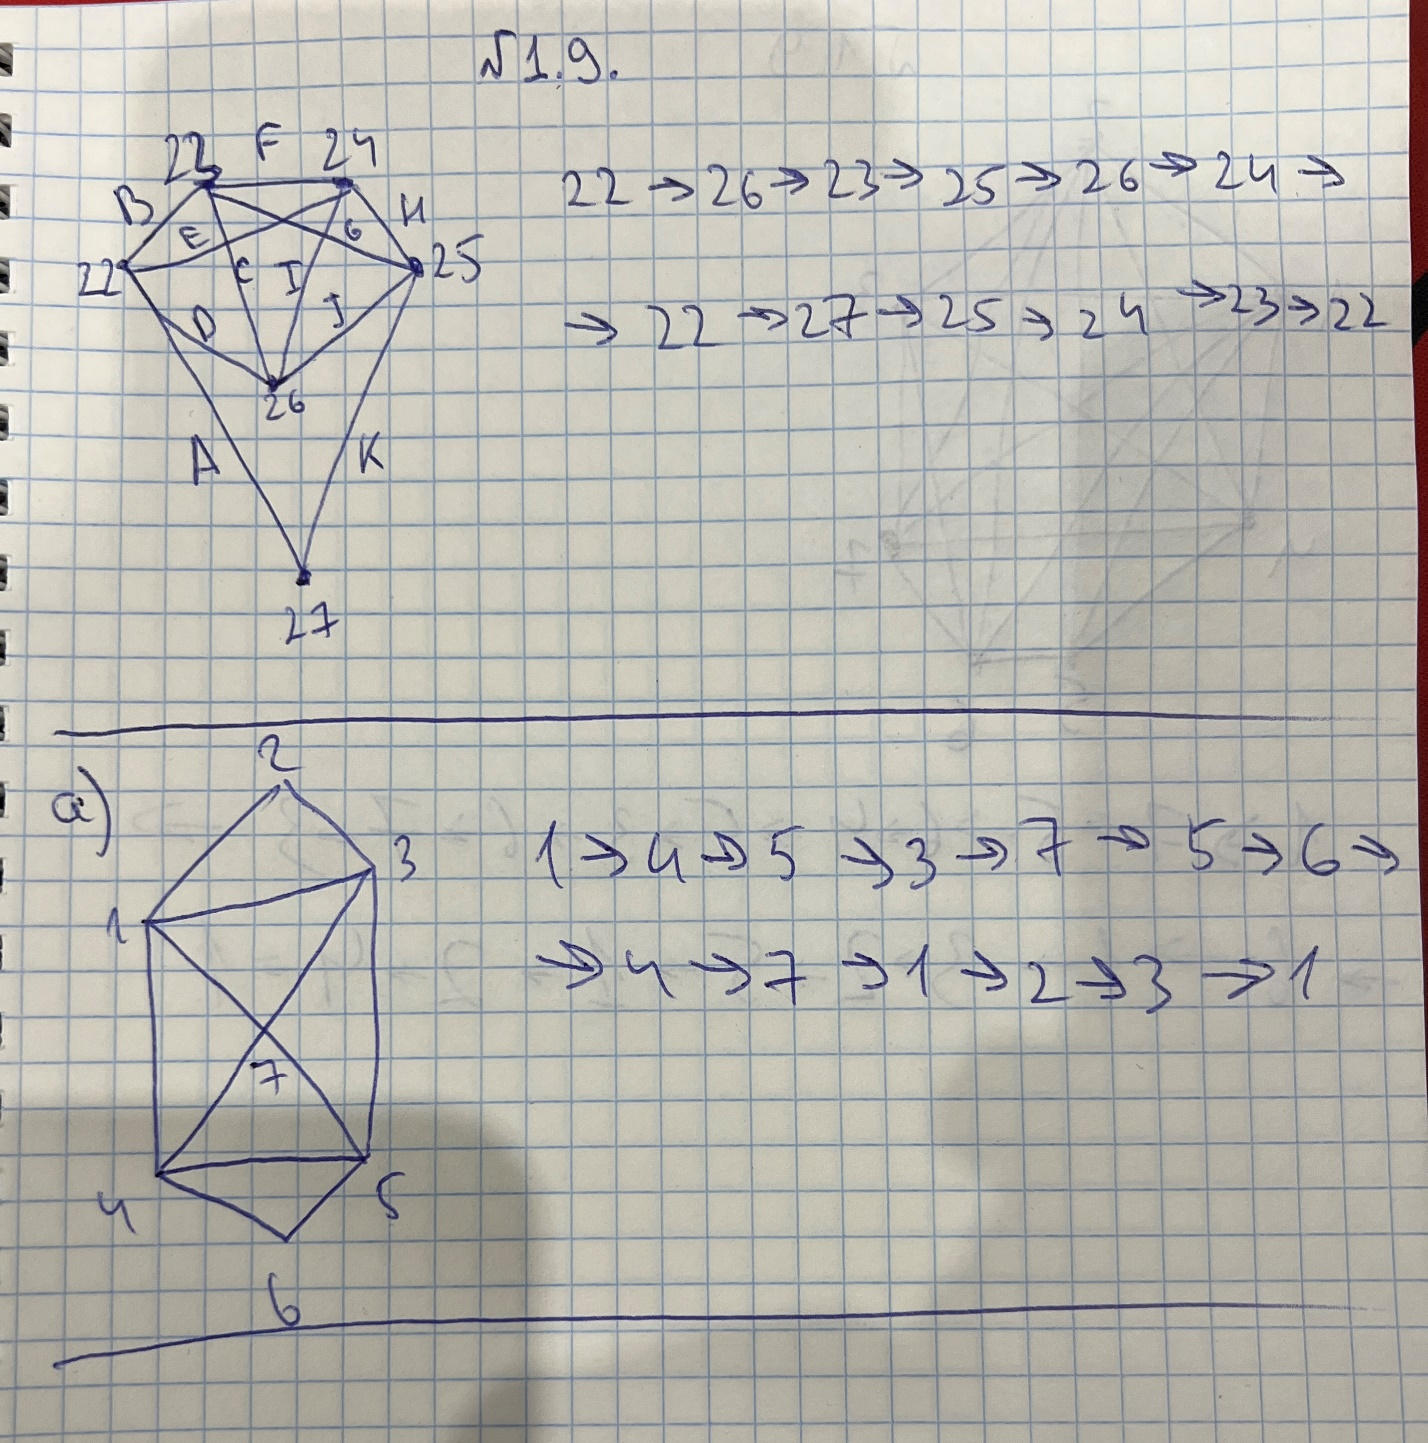 №1.9.
23 F 24
B E G H
22 C I 25
D J
26
A K
27
22 → 26 → 23 → 25 → 26 → 24 →
→ 22 → 27 → 25 → 24 → 23 → 22
a)
2
3
1
7
4 5
6
1 → 4 → 5 → 3 → 7 → 5 → 6 →
→ 4 → 7 → 1 → 2 → 3 → 1